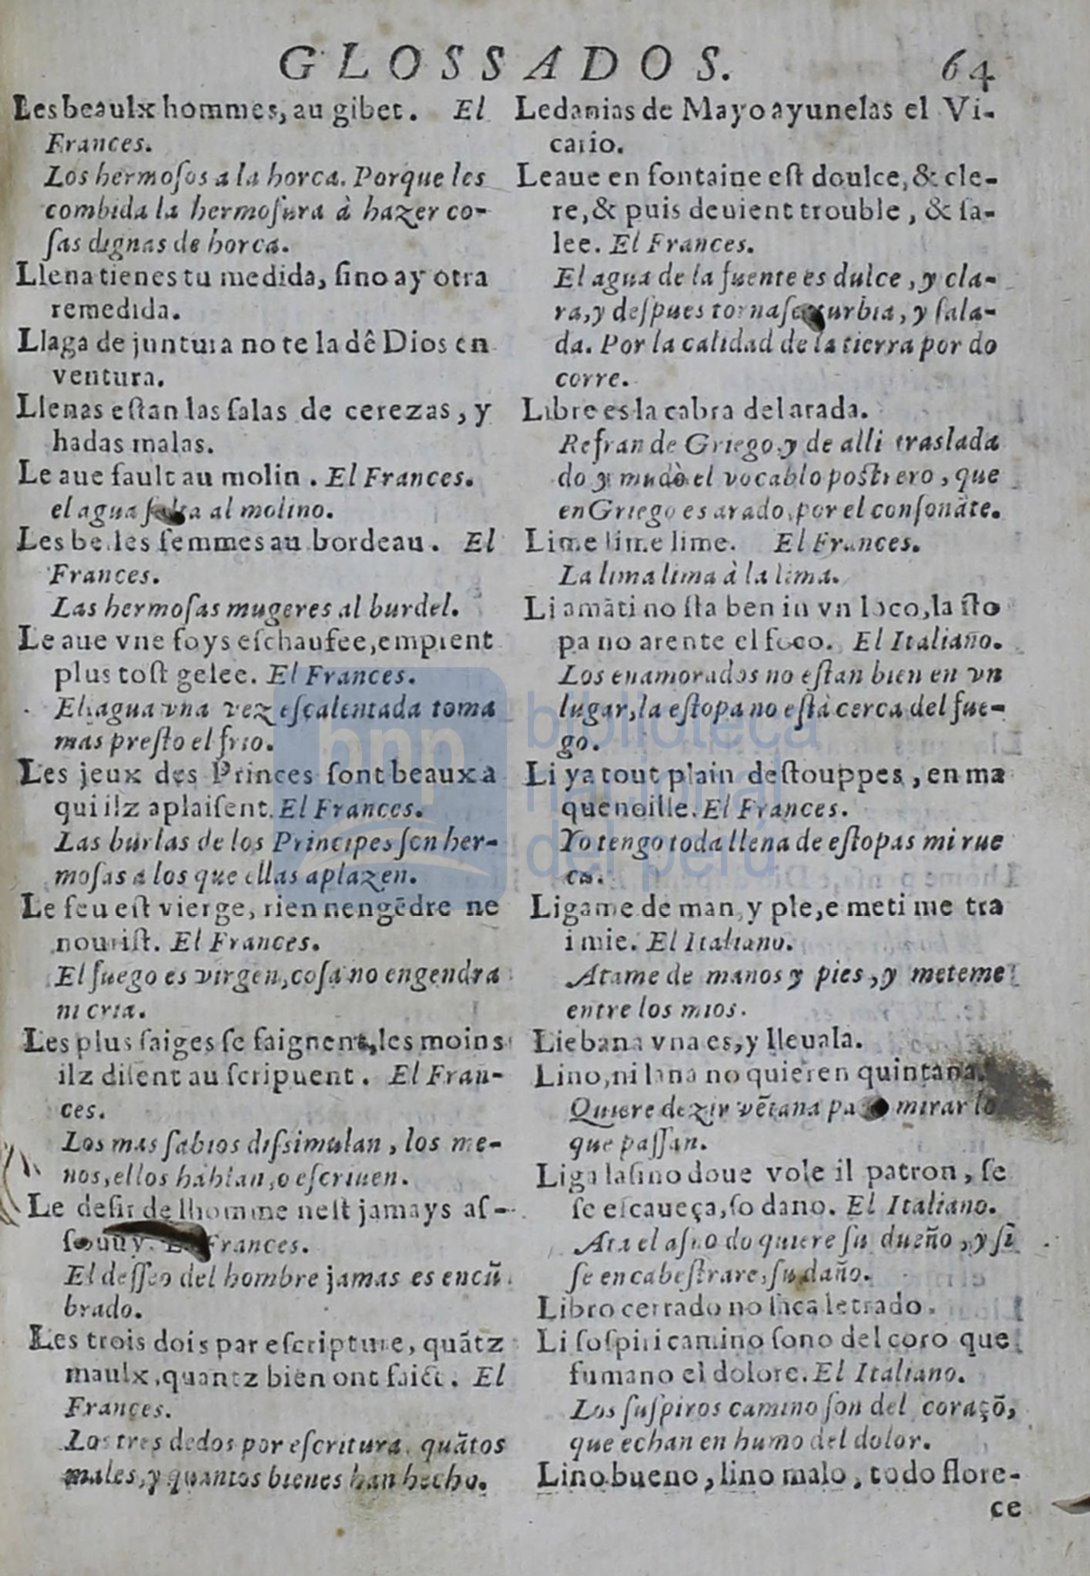 GLOSSADOS. 64
Les beaulx hommes, au gibet. El
Frances.
Los hermoſos a la horca. Porque les
combida la hermoſura à hazer co-
ſas dignas de horca.
Llena tienes tu medida, ſino ay otra
remedida.
Llaga de juntura no te la dê Dios en
ventura.
Llenas eſtan las ſalas de cerezas, y
hadas malas.
Le aue fault au molin. El Frances.
el agua falta al molino.
Les belles femmes au bordeau. El
Frances.
Las hermoſas mugeres al burdel.
Le aue vne foys eſchaufee, empient
plus toſt gelee. El Frances.
El agua vna vez eſcalentada toma
mas preſto el frio.
Les jeux des Princes ſont beaux a
qui ilz aplaiſent. El Frances.
Las burlas de los Principes ſon her-
moſas a los que ellas aplazen.
Le feu eſt vierge, rien nengēdre ne
nouriſt. El Frances.
El fuego es virgen, coſa no engendra
ni cria.
Les plus ſaiges ſe faignent, les moins
ilz diſent au ſcripuent. El Fran-
ces.
Los mas ſabios diſsimulan, los me-
nos, ellos hablan, o eſcriuen.
Le deſir de lhomme neſt jamays aſ-
Frances.
El deſſeo del hombre jamas es encũ
brado.
Les trois dois par eſcripture, quãtz
maulx, quantz bien ont faict. El
Frances.
Los tres dedos por eſcritura, quãtos
males, y quantos bienes han hecho.
Ledanias de Mayo ayunelas el Vi-
cario.
Leaue en fontaine eſt doulce, & cle-
re, & puis deuient trouble, & ſa-
lee. El Frances.
El agua de la fuente es dulce, y cla-
ra, y deſpues tornaſe turbia, y ſala-
da. Por la calidad de la tierra por do
corre.
Libre es la cabra del arada.
Refran de Griego, y de alli traslada
do y mudò el vocablo poſtrero, que
en Griego es arado, por el conſonãte.
Lime lime lime. El Frances.
La lima lima à la lima.
Li amãti no ſta ben in vn loco, la ſto
pa no arente el foco. El Italiano.
Los enamorados no eſtan bien en vn
lugar, la eſtopa no eſtà cerca del fue-
go.
Li ya tout plain deſtouppes, en ma
quenoille. El Frances.
Yo tengo toda llena de eſtopas mi rue
ca.
Ligame de man, y pie, e meti me tra
i mie. El Italiano.
Atame de manos y pies, y meteme
entre los mios.
Liebana vna es, y lleuala.
Lino, ni lana no quieren quintana.
Quiere dezir vẽtana para mirar lo
que paſſan.
Liga laſino doue vole il patron, ſe
ſe eſcaueça, ſo dano. El Italiano.
Ata el aſno do quiere ſu dueño, y ſi
ſe encabeſtrare, ſu daño.
Libro cerrado no ſaca letrado.
Li ſoſpiri camino ſono del coro que
fumano el dolore. El Italiano.
Los ſuſpiros camino ſon del coraçõ,
que echan en humo del dolor.
Lino bueno, lino malo, todo flore-
ce
biblioteca
nacional
del perú
bnp